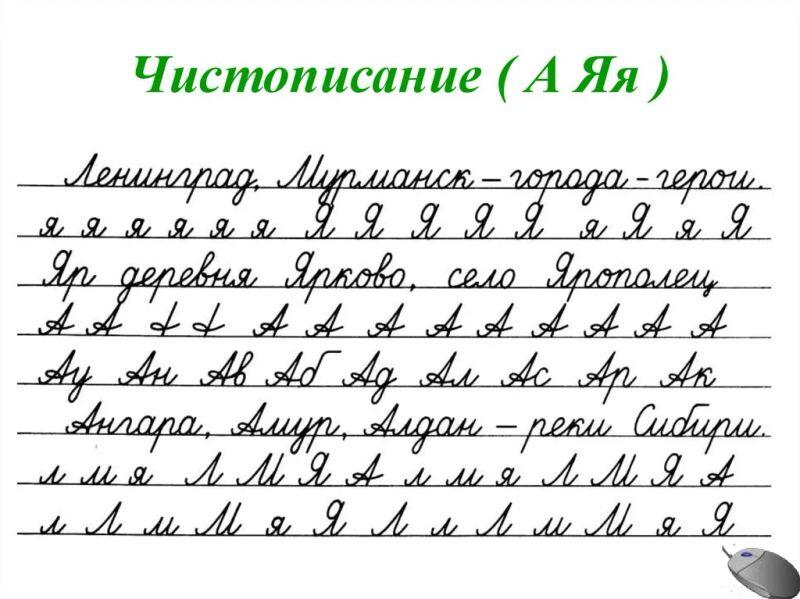 Чистописание ( А Яя )
Ленинград, Мурманск – города - герои.
я я я я я я Я Я Я Я Я я Я я Я
Яр деревня Ярково, село Ярополец
А А А А А А А А А А А А
Ау Ан Ав Аб Ад Ал Ас Ар Ак
Ангара, Амур, Алдан – реки Сибири.
л м я Л М Я А л м я Л М Я А
л Л м М я Я Л л Л м М я Я